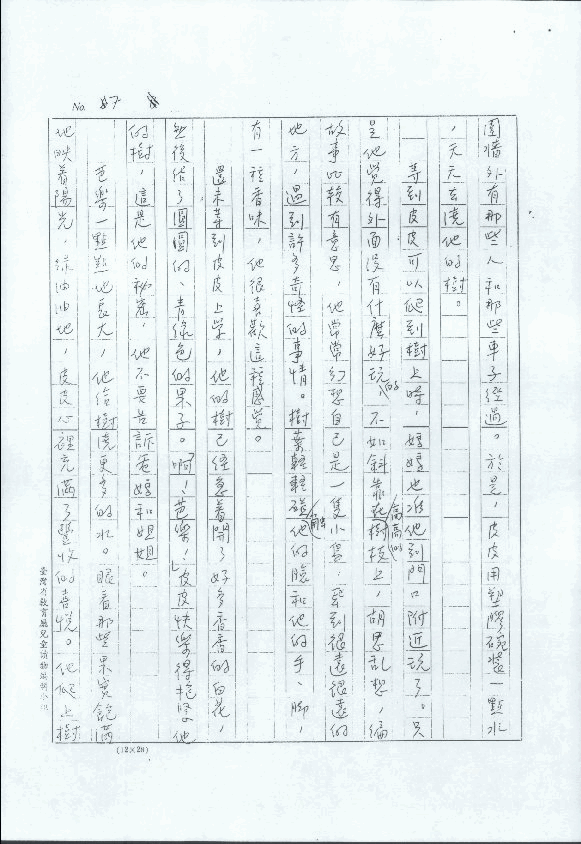 No. 7
圍牆外有那些人和那些車子經過。於是，皮皮用塑膠碗裝一點水
，天天去澆他的樹。
等到皮皮可以爬到樹上時，媽媽也准他到門口附近玩了。只
是他覺得外面沒有什麼好玩的，不如斜靠在高高的樹枝上，胡思亂想，編
故事比較有意思，他常常幻想自己是一隻小鳥，飛到很遠很遠的
地方，遇到許多奇怪的事情。樹葉輕輕碰他的臉和他的手、腳，
有一種香味，他很喜歡這種感覺。
還未等到皮皮上學，他的樹已經急着開了好多香香的白花，
然後結了圓圓的、青綠色的果子。啊！芭樂！皮皮快樂得抱緊他
的樹，這是他的秘密，他不要告訴爸媽和姐姐。
芭樂一點點地長大，他給樹澆更多的水。眼看那些果實飽滿
地映着陽光，綠油油地，皮皮心裡充滿了豐收的喜悅。他爬上樹
臺灣省教育廳兒童讀物編輯小組
(12×28)